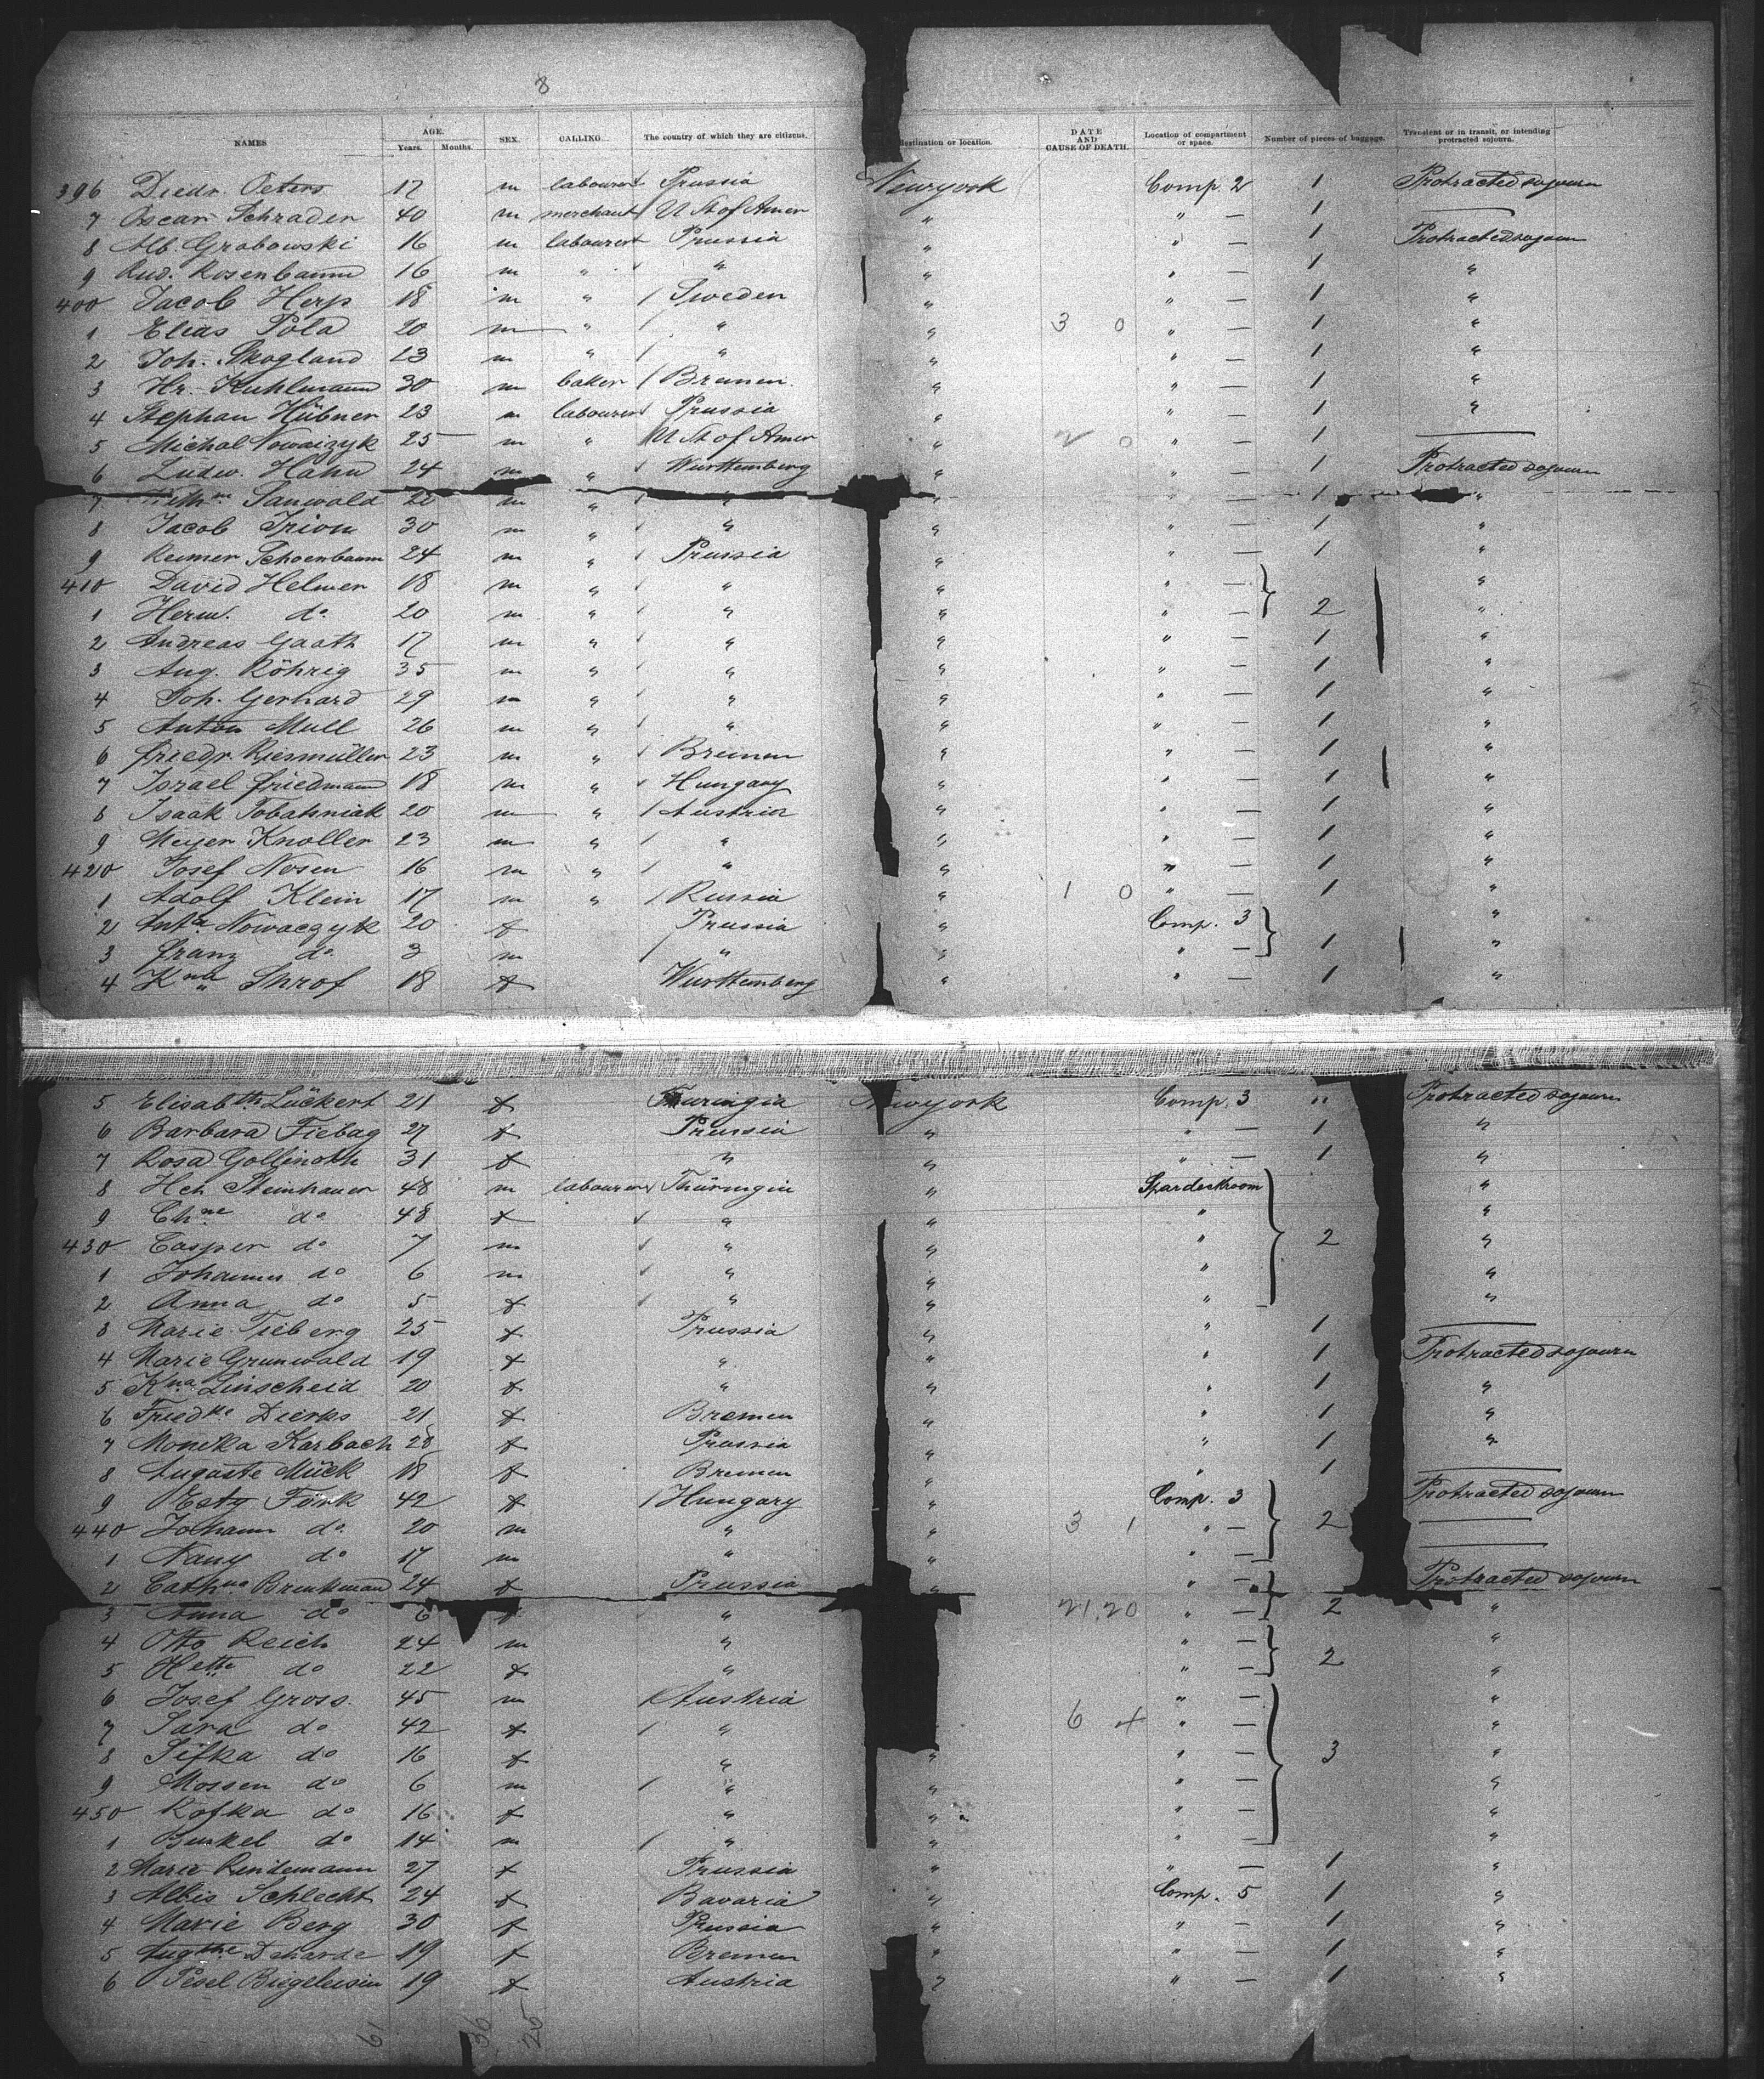 8
NAMES AGE. Years. Months. SEX. CALLING. The country of which they are citizens. destination or location. DATE AND CAUSE OF DEATH. Location of compartment or space. Number of pieces of baggage. Transient or in transit, or intending protracted sojourn.
396 Diedr. Peters 17 m labourer Prussia Newyork Comp. 2 1 Protracted sojourn
7 Oscar Schrader 40 m merchant U St of Amer " " — 1 —
8 Alb. Grabowski 16 m labourer Prussia " " — 1 Protracted sojourn
9 Rud. Rosenbaum 16 m " " " " — 1 "
400 Jacob Herp 18 m " / Sweden " " — 1 "
1 Elias Pola 20 m " / " " 3 0 " — 1 "
2 Joh. Skogland 23 m " / " " " — 1 "
3 Hr. Kuhlmann 30 m baker / Bremen " " — 1 "
4 Stephan Hübner 23 m labourer Prussia " " — 1 "
5 Michal Nowaczyk 25 m " U St of Amer " 2 0 " — 1 —
6 Ludw. Hahn 24 m " Wurttemberg " " — 1 Protracted sojourn
7 Sanwald 20 m " " " — 1 "
8 Jacob Irion 30 m " " " " — 1 "
9 Reimer Schoenbaum 24 m " Prussia " " — 1 "
410 David Helmer 18 m " " " " — "
1 Herm. do 20 m " " " " — 2 "
2 Andreas Gaath 17 m " " " " — 1 "
3 Aug. Röhrig 35 m " " " " — 1 "
4 Joh. Gerhard 29 m " " " " — 1 "
5 Anton Mull 26 m " " " " — 1 "
6 Friedr. Riesmüller 23 m " Bremen " " — 1 "
7 Israel Friedmann 18 m " Hungary " " — 1 "
8 Isaak Tobatsniak 20 m " / Austria " " — 1 "
9 Meyer Knoller 23 m " / " " " — 1 "
420 Josef Nosen 16 m " / " " " — 1 "
1 Adolf Klein 17 m " / Russia " 1 0 " — 1 "
2 Anta Nowaczyk 20 f Prussia " Comp. 3 "
3 Franz do 3 m / " " " — 1 "
4 Kna Shrof 18 f Wurttemberg " " — 1 "
5 Elisabth Lückert 21 f Turingia Newyork Comp. 3 " Protracted sojourn
6 Barbara Fiebag 27 f Prussia " " — 1 "
7 Rosa 31 f " " " — 1 "
8 Hch. Steinhauer 48 m labourer Thüringia " Spardeckroom "
9 Chne do 48 f " " " "
430 Casper do 7 m " " " 2 "
1 Johannes do 6 m " " " "
2 Anna do 5 f " " " "
3 Marie Tieberg 25 f Prussia " " 1 —
4 Marie Grunwald 19 f " " " 1 Protracted sojourn
5 Kna Linscheid 20 f " " " 1 "
6 Friedke Dierks 21 f Bremen " " 1 "
7 Monika Karbach 28 f Prussia " " 1 "
8 Auguste Mück 18 f Bremen " " 1 —
9 Esty Förk 42 f / Hungary " Comp. 3 Protracted sojourn
440 Johann do 20 m " " 3 1 " — 2 —
1 Nany do 17 m " " " — —
2 Cathna Brinkman 24 f Prussia " " — Protracted sojourn
3 Anna do 6 f " 21.20 " — 2 "
4 Otto Reich 24 m " " — "
5 Hette do 22 f " " — 2 "
6 Josef Gross 45 m / Austria " — "
7 Sara do 42 f / " 6 4 " — "
8 Sifka do 16 f " " " — 3 "
9 Mossen do 6 m / " " " — "
450 Rofka do 16 f " " " — "
1 Bunkel do 14 m / " " " "
2 Marie Rindemann 27 f Prussia " " — 1 "
3 Albis Schlecht 24 f Bavaria " Comp. 5 1 "
4 Marie Berg 30 f Prussia " " — 1 "
5 Augthe Deharde 19 f Bremen " " — 1 "
6 Pesel Biegeleisin 19 f Austria " " — 1 "
61 36 25